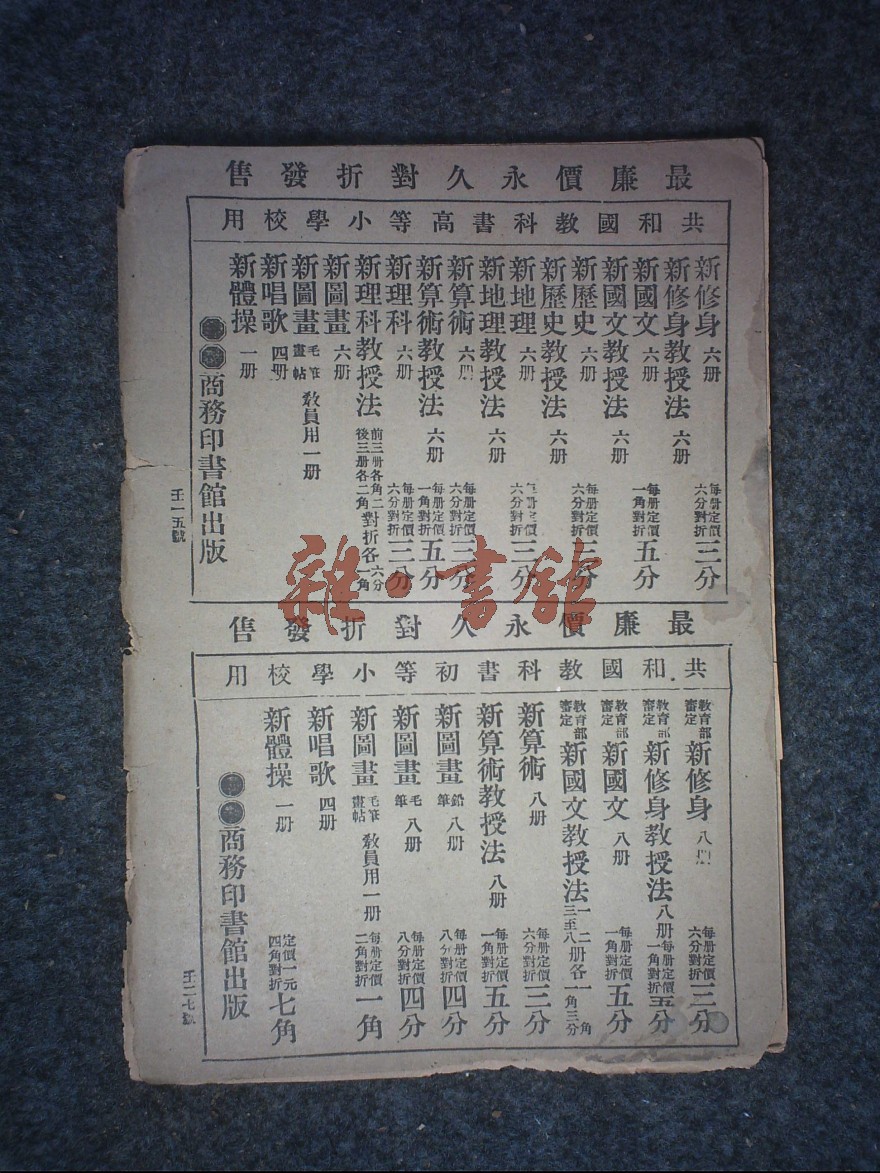 最廉價永久對折發售
共和國教科書高等小學校用
新修身 六册 每册定價六分對折三分
新修身教授法 六册
新國文 六册 每册定價一角對折五分
新國文教授法 六册
新歷史 六册 每册定價六分對折三分
新歷史教授法 六册
新地理 六册 每册定價六分對折三分
新地理教授法 六册
新算術 六册 每册定價六分對折三分
新算術教授法 六册 每册定價一角對折五分
新理科 六册 每册定價六分對折三分
新理科教授法 前三册各角二後三册各二角對折各六分一角
新圖畫 六册
新圖畫 毛筆畫帖 教員用一册
新唱歌 四册
新體操 一册
商務印書館出版
壬一五號
雜·書館
最廉價永久對折發售
共和國教科書初等小學校用
教育部審定 新修身 八册 每册定價六分對折三分
教育部審定 新修身教授法 八册 每册定價一角對折五分
教育部審定 新國文 八册 每册定價一角對折五分
教育部審定 新國文教授法 一二三至八册各一角一角三分
新算術 八册 每册定價六分對折三分
新算術教授法 八册 每册定價一角對折五分
新圖畫 鉛筆 八册 每册定價八分對折四分
新圖畫 毛筆 八册 每册定價八分對折四分
新圖畫 毛筆畫帖 教員用一册 每册定價二角對折一角
新唱歌 四册
新體操 一册 定價一元四角對折七角
商務印書館出版
壬二七號